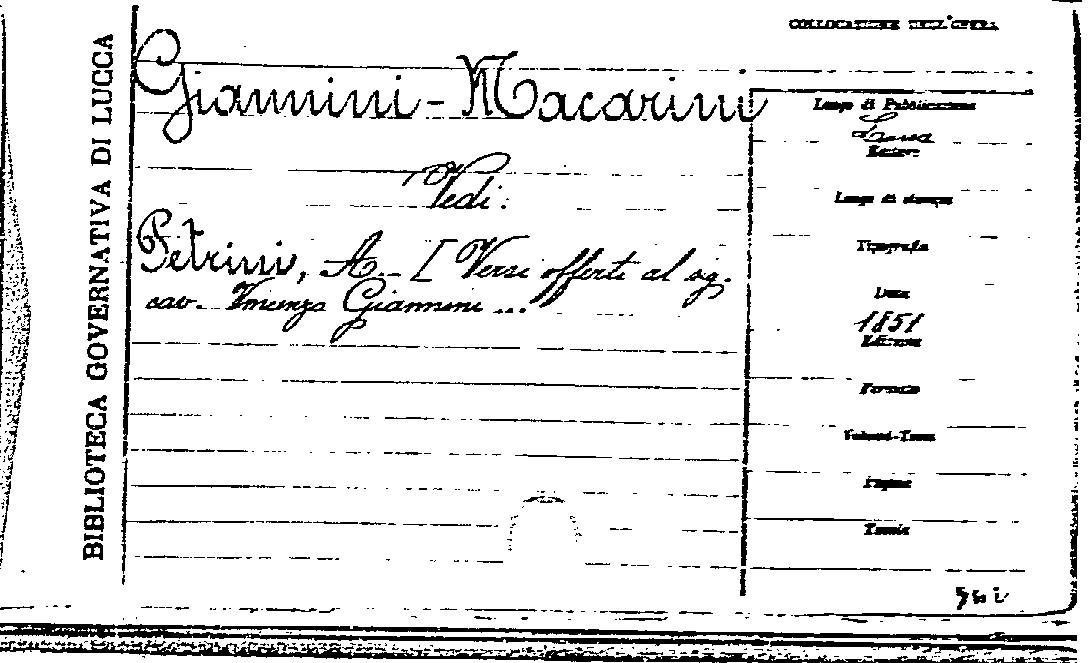 BIBLIOTECA GOVERNATIVA DI LUCCA
COLLOCAZIONE DELL'OPERA
Giannini-Macarini
Vedi:
Petrini, A. - [Versi offerti al sig.
cav. Vincenzo Giannini ...
Luogo di Pubblicazione
Lucca
Editore
Luogo di stampa
Tipografia
Data
1851
Edizione
Formato
Volumi-Tomi
Pagine
Tavole